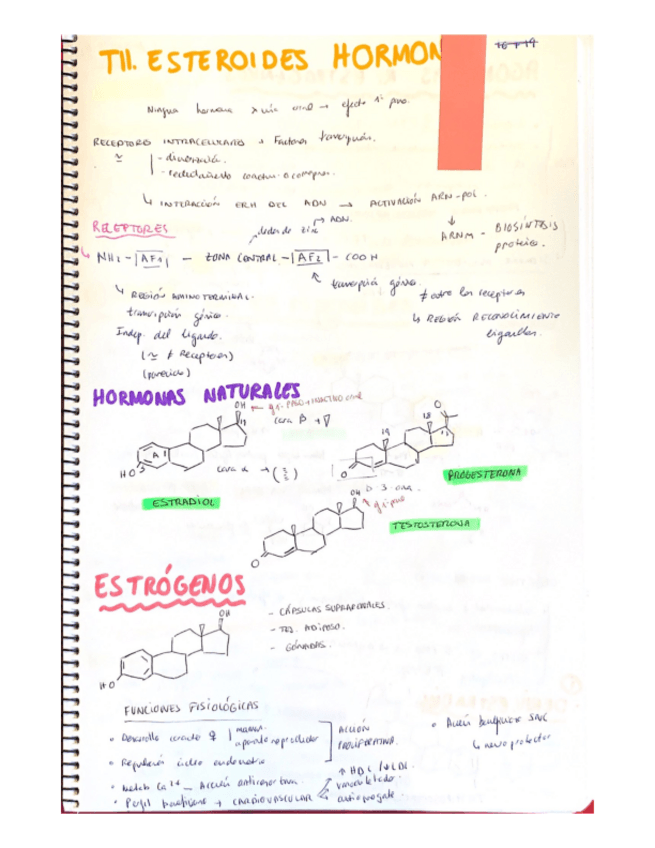 T11. ESTEROIDES HORMON
16-1-19
Ninguna hormona x vía oral → efecto 1er paso.
RECEPTORES INTRACELULARES → Factores transcripción.
- dimerización.
↳ INTERACCIÓN ERH DEL ADN → ACTIVACIÓN ARN-POL.
↓
ARNM - BIOSÍNTESIS
proteica.
RECEPTORES
dedos de zinc → ADN.
NH2 - |AF1| - ZONA CENTRAL - |AF2| - COOH
transcripción génica.
↳ REGIÓN AMINO TERMINAL.
transcripción génica.
Indep. del ligando.
(≃ ≠ Receptores)
(parecido)
≠ entre los receptores
↳ REGIÓN RECONOCIMIENTO
ligandos.
HORMONAS NATURALES
OH
17
cara β → ∇
A 1
HO 3
cara α →
ESTRADIOL
O
18
19
17
O
PROGESTERONA
OH
O
TESTOSTERONA
ESTRÓGENOS
OH
HO
- CÁPSULAS SUPRARRENALES.
- TEJ. ADIPOSO.
- GÓNADAS.
FUNCIONES FISIOLÓGICAS
• Desarrollo ♀ | mamas
aparato reproductor
ACCIÓN
PROLIFERATIVA.
• Regulación ciclo endometrio
• Metab Ca2+ - Acción antirresortiva.
• Perfil beneficioso → CARDIOVASCULAR
↑ HDL / ↓ LDL.
vasodilatador.
antiagregante.
• Acción beneficiosa SNC
↳ neuroprotector